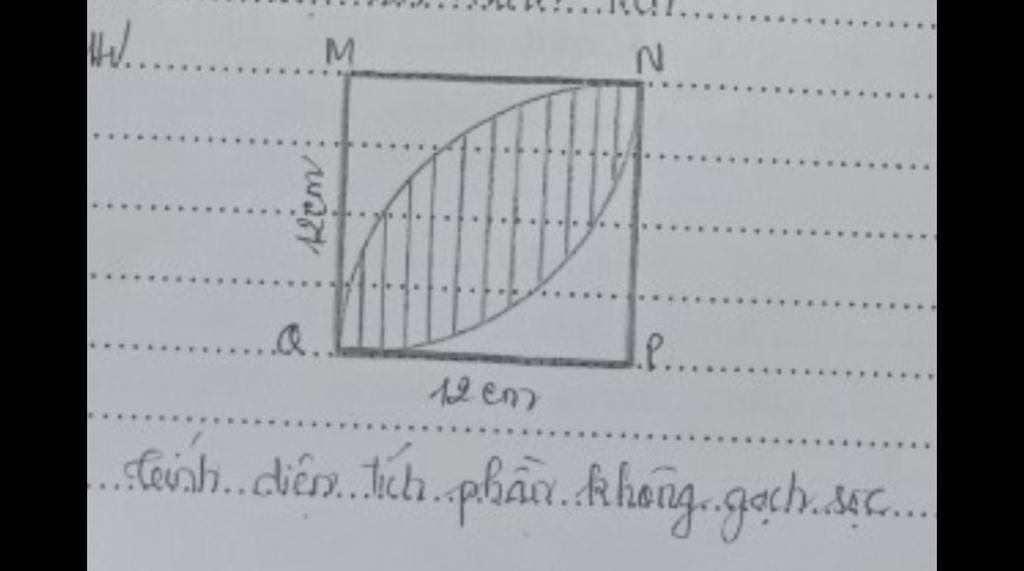 M
N
12cm
Q
P
12cm
Tính diện tích phần không gạch sọc